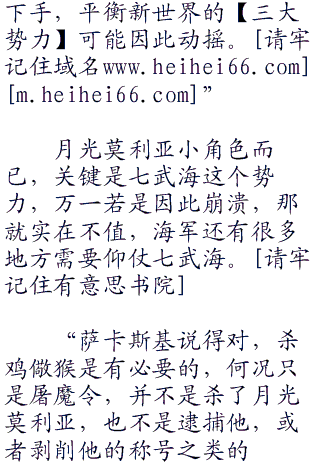 下手，平衡新世界的【三大
势力】可能因此动摇。[请牢
记住域名www.heihei66.com]
[m.heihei66.com]”
月光莫利亚小角色而
已，关键是七武海这个势
力，万一若是因此崩溃，那
就实在不值，海军还有很多
地方需要仰仗七武海。[请牢
记住有意思书院]
“萨卡斯基说得对，杀
鸡儆猴是有必要的，何况只
是屠魔令，并不是杀了月光
莫利亚，也不是逮捕他，或
者剥削他的称号之类的